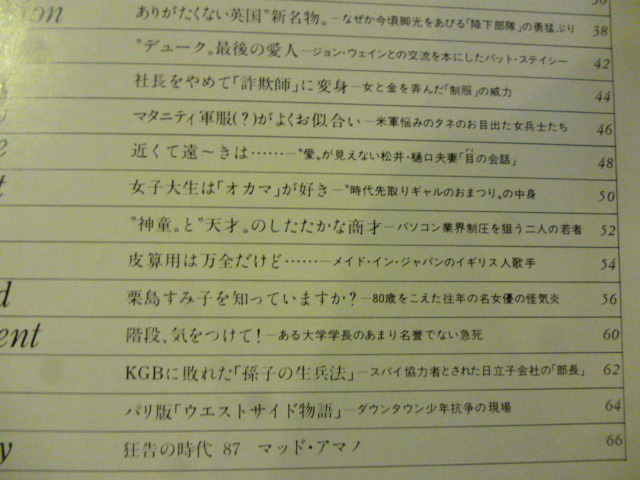 ion
ありがたくない英国〝新名物〟—なぜか今頃脚光をあびる「降下部隊」の勇猛ぶり 38
〝デューク〟最後の愛人—ジョン・ウェインとの交流を本にしたパット・ステイシー 42
社長をやめて「詐欺師」に変身—女と金を弄んだ「制服」の威力 44
マタニティ軍服(?)がよくお似合い—米軍悩みのタネのお目出た女兵士たち 46
e 近くて遠〜きは……—〝愛〟が見えない松井・樋口夫妻「目の会話」 48
t 女子大生は「オカマ」が好き—〝時代先取りギャルのおまつり〟の中身 50
〝神童〟と〝天才〟のしたたかな商才—パソコン業界制圧を狙う二人の若者 52
皮算用は万全だけど……—メイド・イン・ジャパンのイギリス人歌手 54
d 栗島すみ子を知っていますか?—80歳をこえた往年の名女優の怪気炎 56
ent 階段、気をつけて!—ある大学学長のあまり名誉でない急死 60
KGBに敗れた「孫子の生兵法」—スパイ協力者とされた日立子会社の「部長」 62
パリ版「ウエストサイド物語」—ダウンタウン少年抗争の現場 64
y 狂告の時代 87 マッド・アマノ 66